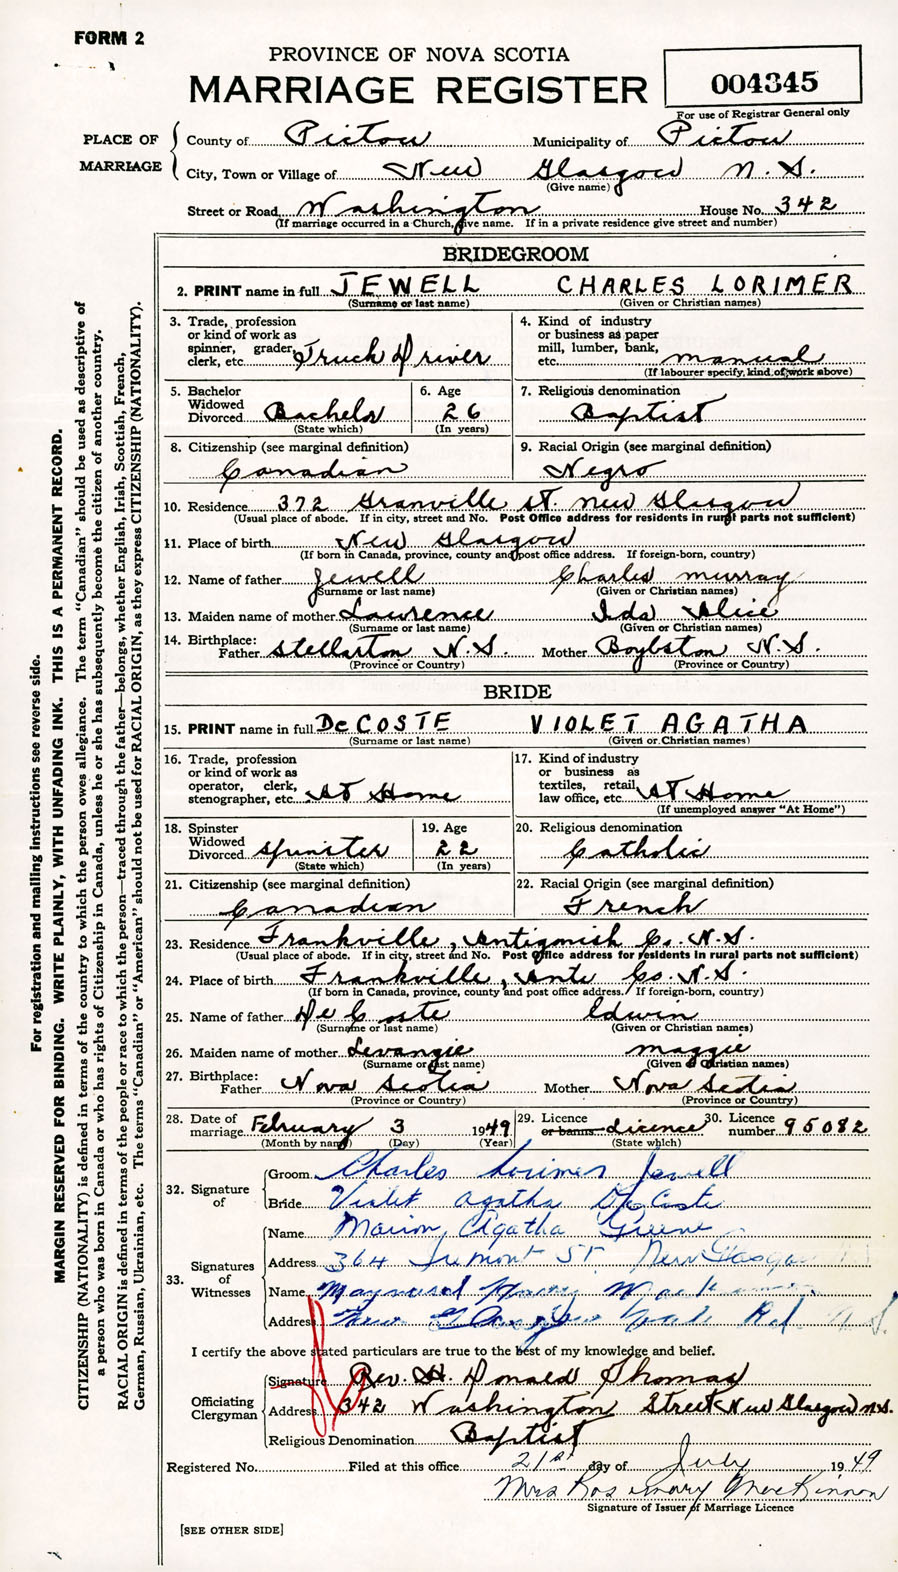 FORM 2
PROVINCE OF NOVA SCOTIA
MARRIAGE REGISTER
004345
For use of Registrar General only
PLACE OF MARRIAGE
County of Pictou Municipality of Pictou
City, Town or Village of New Glasgow N.S.
(Give name)
Street or Road Washington House No. 342
(If marriage occurred in a Church, give name. If in a private residence give street and number)
BRIDEGROOM
2. PRINT name in full JEWELL CHARLES LORIMER
(Surname or last name) (Given or Christian names)
3. Trade, profession or kind of work as spinner, grader, clerk, etc. Truck Driver
4. Kind of industry or business as paper mill, lumber, bank, etc. manual
(If labourer specify, kind of work above)
5. Bachelor Widowed Divorced Bachelor
(State which)
6. Age 26
(In years)
7. Religious denomination
Baptist
8. Citizenship (see marginal definition)
Canadian
9. Racial Origin (see marginal definition)
Negro
10. Residence 372 Granville St. New Glasgow
(Usual place of abode. If in city, street and No. Post Office address for residents in rural parts not sufficient)
11. Place of birth New Glasgow
(If born in Canada, province, county and post office address. If foreign-born, country)
12. Name of father Jewell Charles Murray
(Surname or last name) (Given or Christian names)
13. Maiden name of mother Lawrence Ida Alice
(Surname or last name) (Given or Christian names)
14. Birthplace: Father Stellarton N.S. Mother Boylston N.S.
(Province or Country) (Province or Country)
BRIDE
15. PRINT name in full DeCOSTE VIOLET AGATHA
(Surname or last name) (Given or Christian names)
16. Trade, profession or kind of work as operator, clerk, stenographer, etc. At Home
17. Kind of industry or business as textiles, retail, law office, etc. At Home
(If unemployed answer "At Home")
18. Spinster Widowed Divorced Spinster
(State which)
19. Age 22
(In years)
20. Religious denomination
Catholic
21. Citizenship (see marginal definition)
Canadian
22. Racial Origin (see marginal definition)
French
23. Residence Frankville, Antigonish Co. N.S.
(Usual place of abode. If in city, street and No. Post Office address for residents in rural parts not sufficient)
24. Place of birth Frankville, Ante Co. N.S.
(If born in Canada, province, county and post office address. If foreign-born, country)
25. Name of father DeCoste Edwin
(Surname or last name) (Given or Christian names)
26. Maiden name of mother Levangie Maggie
(Surname or last name) (Given or Christian names)
27. Birthplace: Father Nova Scotia Mother Nova Scotia
(Province or Country) (Province or Country)
28. Date of marriage February 3 1949
(Month by name) (Day) (Year)
29. Licence or banns licence
(State which)
30. Licence number 95082
32. Signature of
Groom Charles Lorimer Jewell
Bride Violet Agatha DeCoste
33. Signatures of Witnesses
Name Marion Agatha Greene
Address 364 Tremont St. New Glasgow
Name Maynard
Address New Glasgow Rd. N.S.
I certify the above stated particulars are true to the best of my knowledge and belief.
Officiating Clergyman
Signature Rev. H. Donald Thomas
Address 342 Washington Street New Glasgow N.S.
Religious Denomination Baptist
Registered No. Filed at this office 21st day of July 1949
Mrs Rosemary MacKinnon
Signature of Issuer of Marriage Licence
[SEE OTHER SIDE]
For registration and mailing instructions see reverse side.
MARGIN RESERVED FOR BINDING. WRITE PLAINLY, WITH UNFADING INK. THIS IS A PERMANENT RECORD.
CITIZENSHIP (NATIONALITY) is defined in terms of the country to which the person owes allegiance. The term "Canadian" should be used as descriptive of
a person who was born in Canada or who has rights of Citizenship in Canada, unless he or she has subsequently become the citizen of another country.
RACIAL ORIGIN is defined in terms of the people or race to which the person—traced through the father—belongs, whether English, Irish, Scottish, French,
German, Russian, Ukrainian, etc. The terms "Canadian" or "American" should not be used for RACIAL ORIGIN, as they express CITIZENSHIP (NATIONALITY).